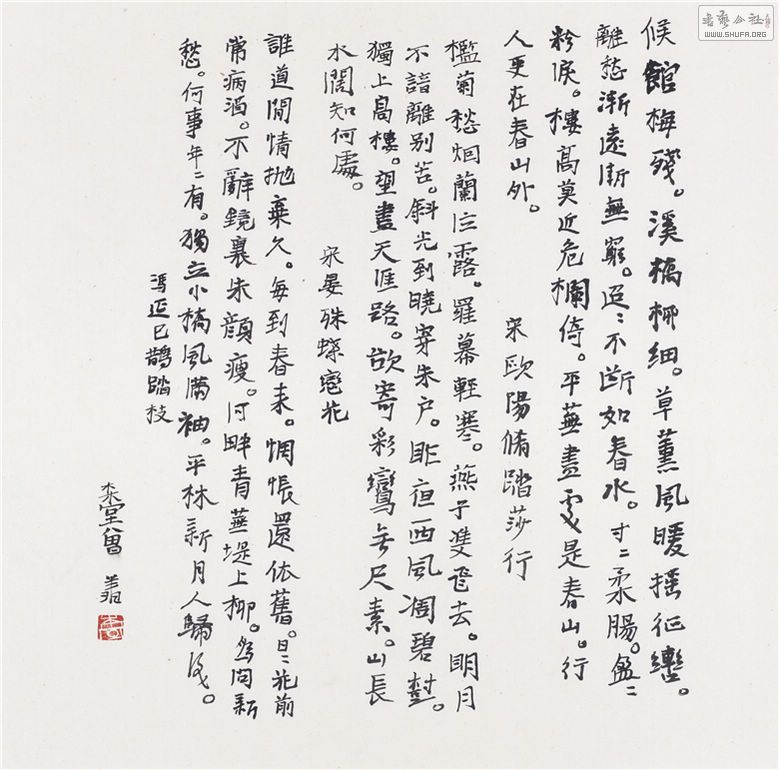 書藝公社
WWW.SHUFA.ORG
候館梅殘。溪橋柳細。草薰風暖搖征轡。
離愁漸遠漸無窮。迢〻不斷如春水。寸〻柔腸。盈〻
粉淚。樓高莫近危欄倚。平蕪盡處是春山。行
人更在春山外。
宋歐陽脩踏莎行
檻菊愁烟蘭泣露。羅幕輕寒。燕子雙飛去。明月
不諳離別苦。斜光到曉穿朱户。昨夜西風凋碧樹。
獨上高樓。望盡天涯路。欲寄彩鸞無尺素。山長
水闊知何處。
宋晏殊蝶戀花
誰道閒情抛棄久。每到春来。惆悵還依舊。日〻花前
常病酒。不辭鏡裏朱顏瘦。河畔青蕪堤上柳。為問新
愁。何事年〻有。獨立小橋風滿袖。平林新月人歸後。
馮延巳鵲踏枝
堂曾